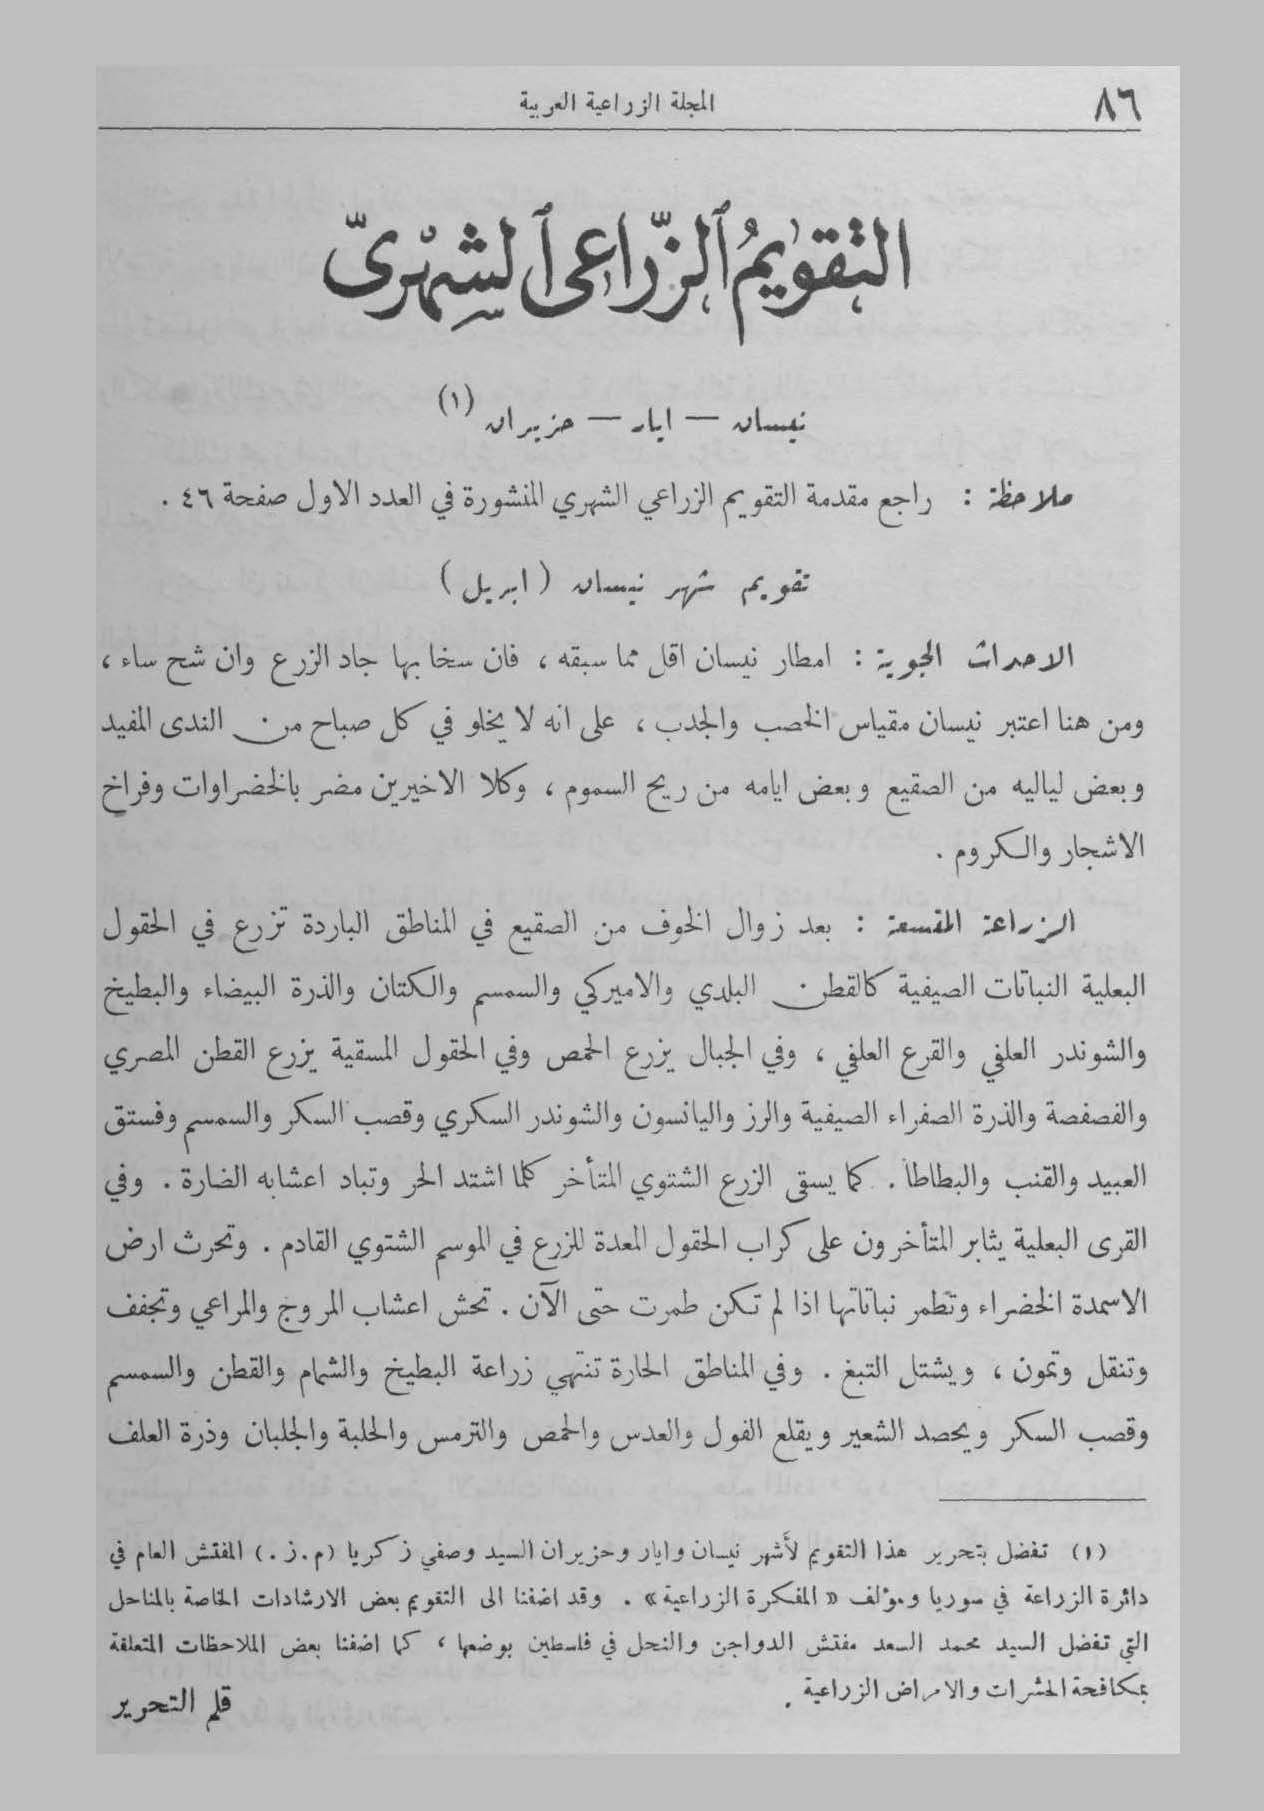 ٨٦
المجلة الزراعية العربية
التقويم الزراعي الشهري
نيسان — ايار — حزيران (١)
ملاحظة : راجع مقدمة التقويم الزراعي الشهري المنشورة في العدد الاول صفحة ٤٦ .
تقويم شهر نيسان ( ابريل )
الاحداث الجوية : امطار نيسان اقل مما سبقه ، فان سخا بها جاد الزرع وان شح ساء ،
ومن هنا اعتبر نيسان مقياس الخصب والجدب ، على انه لا يخلو في كل صباح من الندى المفيد
وبعض لياليه من الصقيع وبعض ايامه من ريح السموم ، وكلا الاخيرين مضر بالخضراوات وفراخ
الاشجار والكروم .
الزراعة المتسعة : بعد زوال الخوف من الصقيع في المناطق الباردة تزرع في الحقول
البعلية النباتات الصيفية كالقطن البلدي والاميركي والسمسم والكتان والذرة البيضاء والبطيخ
والشوندر العلفي والقرع العلفي ، وفي الجبال يزرع الحمص وفي الحقول المسقية يزرع القطن المصري
والفصفصة والذرة الصفراء الصيفية والرز واليانسون والشوندر السكري وقصب السكر والسمسم وفستق
العبيد والقنب والبطاطا . كما يسقى الزرع الشتوي المتأخر كلما اشتد الحر وتباد اعشابه الضارة . وفي
القرى البعلية يثابر المتأخرون على كراب الحقول المعدة للزرع في الموسم الشتوي القادم . وتحرث ارض
الاسمدة الخضراء وتطمر نباتاتها اذا لم تكن طمرت حتى الآن . تحش اعشاب المروج والمراعي وتجفف
وتنقل وتمون ، ويشتل التبغ . وفي المناطق الحارة تنتهي زراعة البطيخ والشمام والقطن والسمسم
وقصب السكر ويحصد الشعير ويقلع الفول والعدس والحمص والترمس والحلبة والجلبان وذرة العلف
(١) تفضل بتحرير هذا التقويم لأشهر نيسان وايار وحزيران السيد وصفي زكريا (م.ز.) المفتش العام في
دائرة الزراعة في سوريا ومؤلف « المفكرة الزراعية » . وقد اضفنا الى التقويم بعض الارشادات الخاصة بالمناحل
التي تفضل السيد محمد السعد مفتش الدواجن والنحل في فلسطين بوضعها ، كما اضفنا بعض الملاحظات المتعلقة
بمكافحة الحشرات والامراض الزراعية .
قلم التحرير